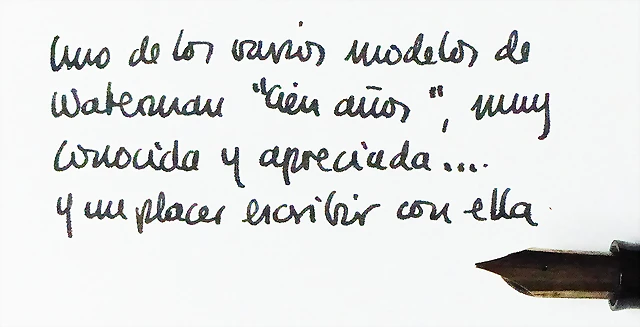 Uno de los varios modelos de
Waterman "Cien años", muy
conocida y apreciada....
y un placer escribir con ella